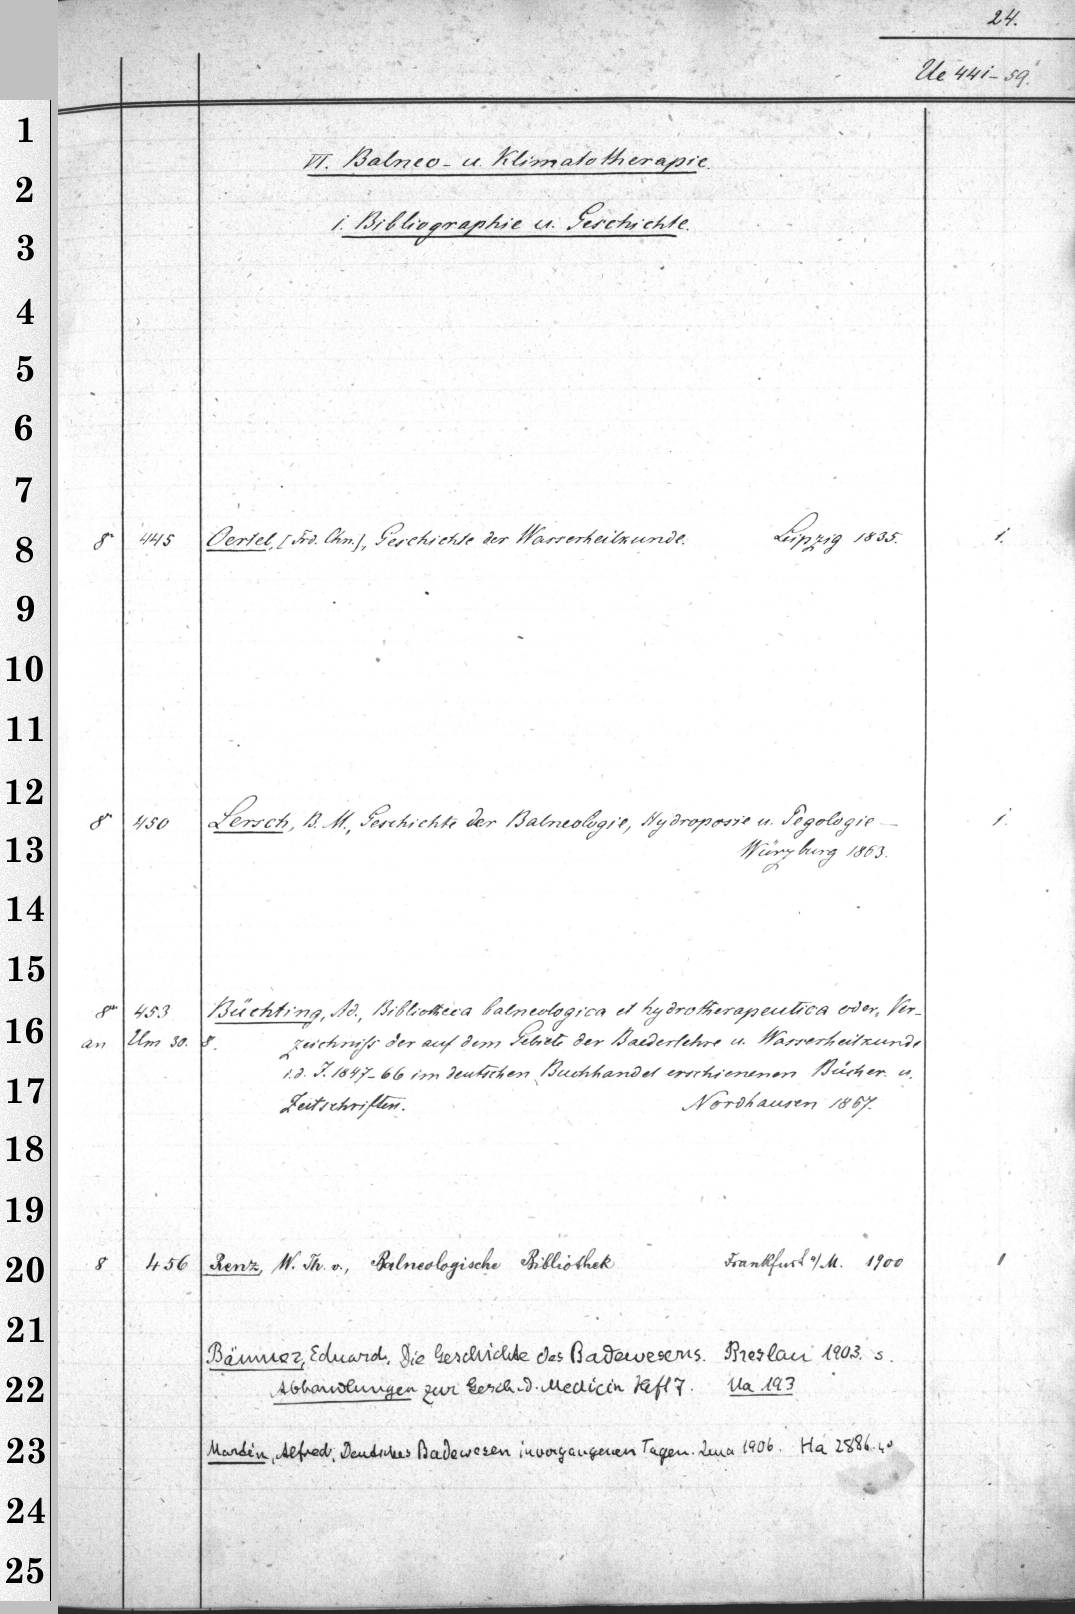 24.
Ue 441-59.
VI. Balneo- u. Klimatotherapie.
1. Bibliographie u. Geschichte.
8° 445 Oertel, [Frd. Chn.], Geschichte der Wasserheilkunde. Leipzig 1835. 1.
8° 450 Lersch, B. M., Geschichte der Balneologie, Hydroposie u. Pegologie — 1.
Würzburg 1863.
8° 453 Büchting, Ad., Bibliotheca balneologica et hydrotherapeutica oder, Ver-
an Um 30. 8. zeichniss der auf dem Gebiete der Baederlehre u. Wasserheilkunde
i.d. J. 1847-66 im deutschen Buchhandel erschienenen Bücher u.
Zeitschriften. Nordhausen 1867.
8 456 Renz, W. Th. v., Balneologische Bibliothek Frankfurt a/M. 1900 1
Bäumer, Eduard, Die Geschichte des Badewesens. Breslau 1903. s.
Abhandlungen zur Gesch. d. Medicin Heft 7. Ua 193
Martin, Alfred, Deutsches Badewesen in vergangenen Tagen. Jena 1906. Ha 2886. 4°
1
2
3
4
5
6
7
8
9
10
11
12
13
14
15
16
17
18
19
20
21
22
23
24
25